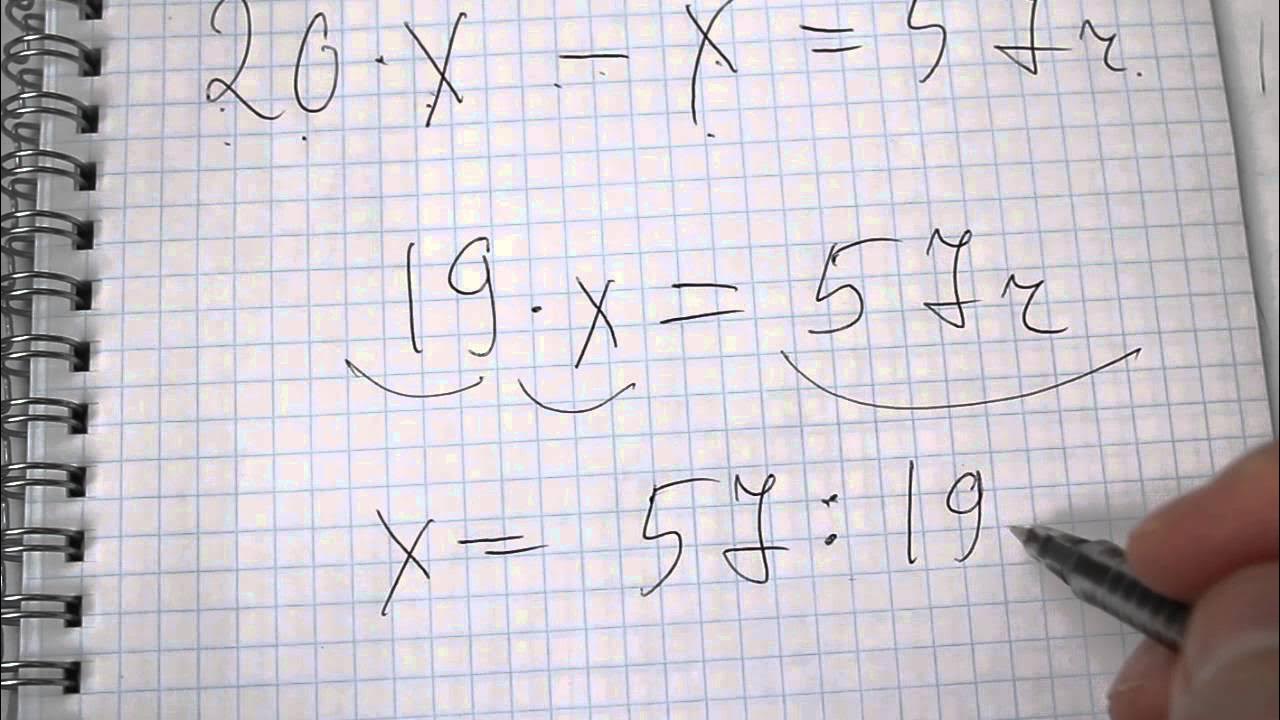 20 · x - x = 57 г.
19 · x = 57 г
x = 57 : 19